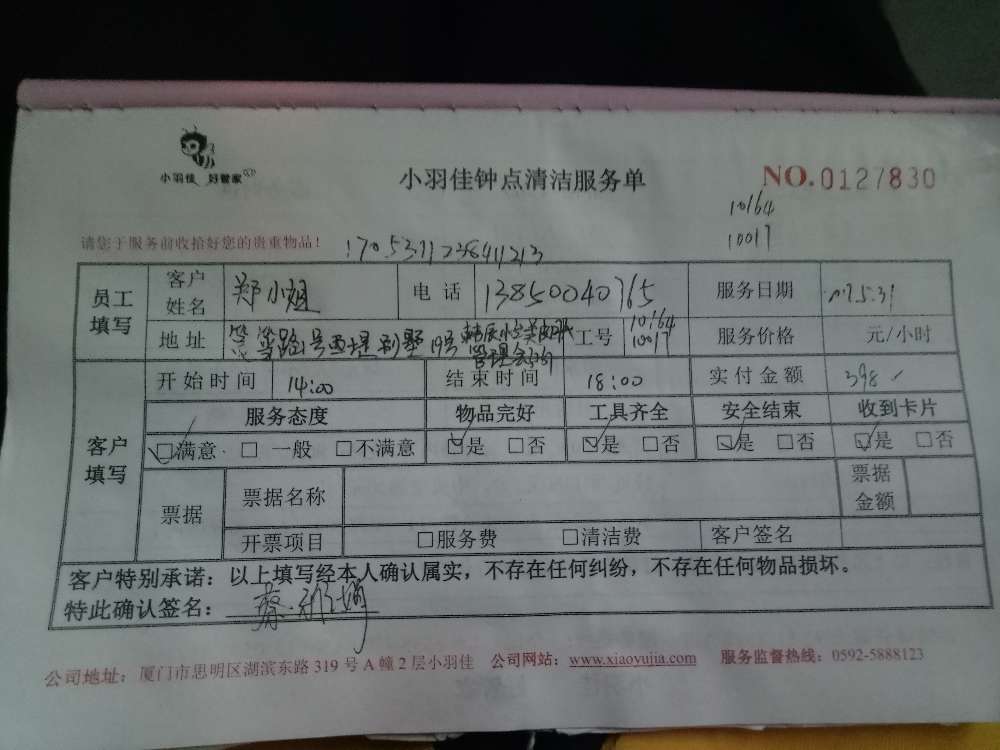 小羽佳 好管家
小羽佳钟点清洁服务单
NO.0127830
10164
10017
请您于服务前收拾好您的贵重物品!
员工填写 客户姓名 郑小姐 电话 13850040765 服务日期 17.5.31
地址 号西堤别墅19号 工号 10164 10017 服务价格 元/小时
管理
客户填写 开始时间 14:00 结束时间 18:00 实付金额 398
服务态度 物品完好 工具齐全 安全结束 收到卡片
☑满意 □一般 □不满意 ☑是 □否 ☑是 □否 ☑是 □否 ☑是 □否
票据 票据名称 票据金额
开票项目 □服务费 □清洁费 客户签名
客户特别承诺:以上填写经本人确认属实,不存在任何纠纷,不存在任何物品损坏。
特此确认签名:蔡
公司地址:厦门市思明区湖滨东路319号A幢2层小羽佳 公司网站:www.xiaoyujia.com 服务监督热线:0592-5888123